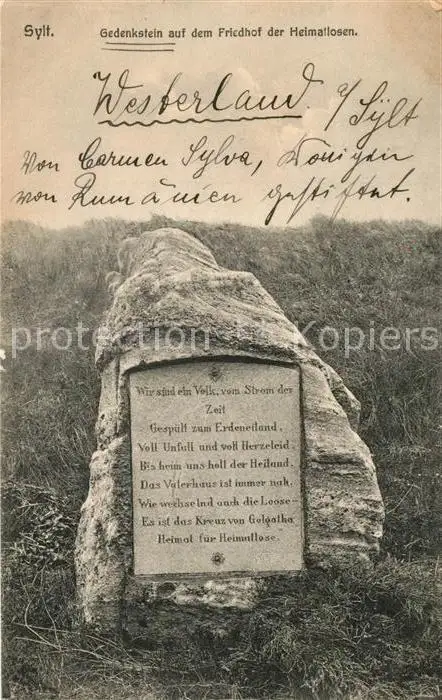 Sylt.
Gedenkstein auf dem Friedhof der Heimatlosen.
Westerland. a/ Sylt
Von Carmen Sylva, Königin
von Rumänien gestiftet.
protection Kopiers
Wir sind ein Volk, vom Strom der
Zeit
Gespült zum Erdeneiland,
Voll Unfall und voll Herzeleid,
Bis heim uns holt der Heiland.
Das Vaterhaus ist immer nah,
Wie wechselnd auch die Loose -
Es ist das Kreuz von Golgatha
Heimat für Heimatlose.